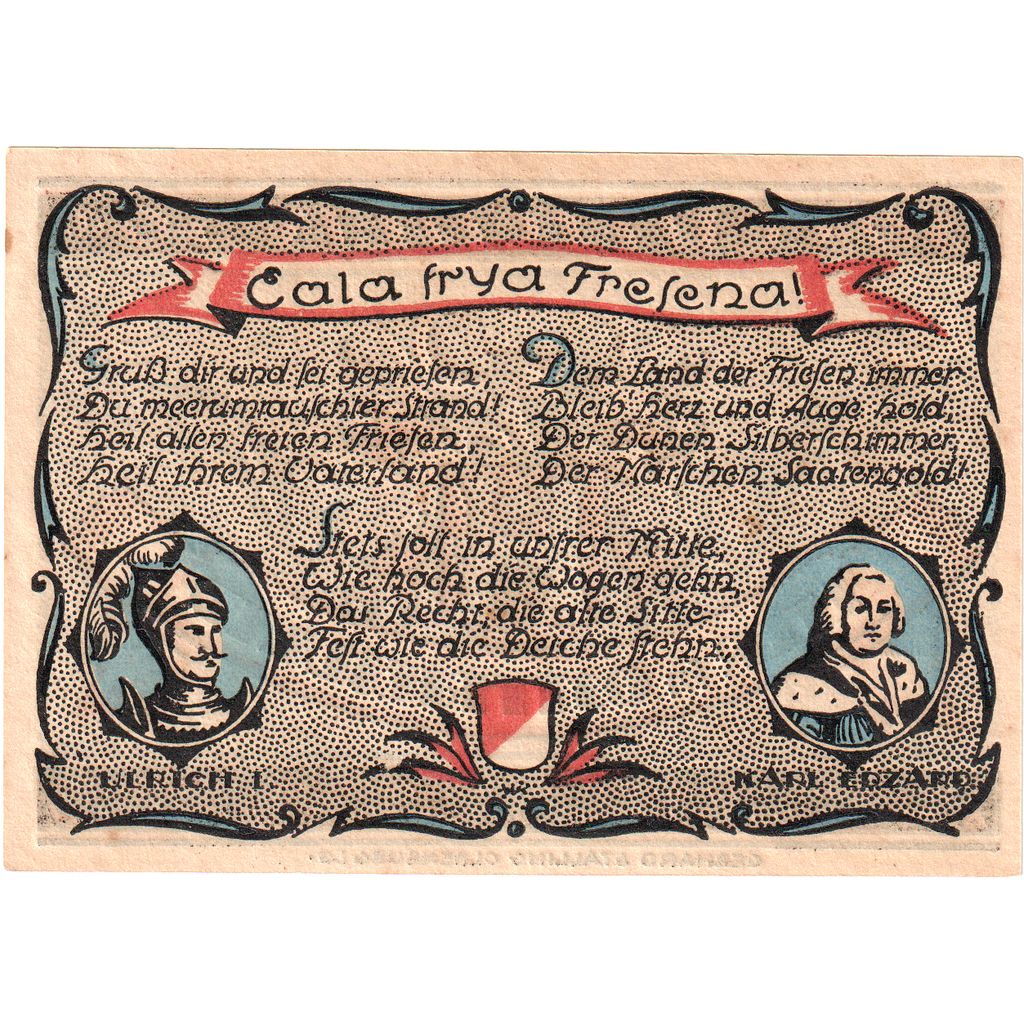 Eala frya Fresena!
Gruß dir und sei gepriesen,
Du meerumrauschter Strand!
Heil allen freien Friesen,
Heil ihrem Vaterland!
Dem Land der Friesen immer
Bleib Herz und Auge hold,
Der Dünen Silberschimmer,
Der Marschen Saatengold!
Stets soll in unsrer Mitte,
Wie hoch die Wogen gehn,
Das Recht, die alte Sitte
Fest wie die Deiche stehn.
ULRICH I.
KARL EDZARD
GERHARD STALLING OLDENBURG I.O.